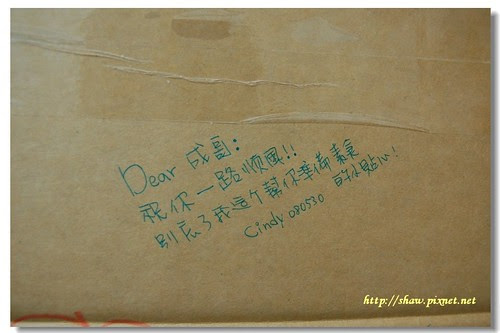 Dear 成哥:
祝你一路顺風!!
別忘了我這个幫你準備素食的小貼心!
Cindy 080530
http://shaw.pixnet.net